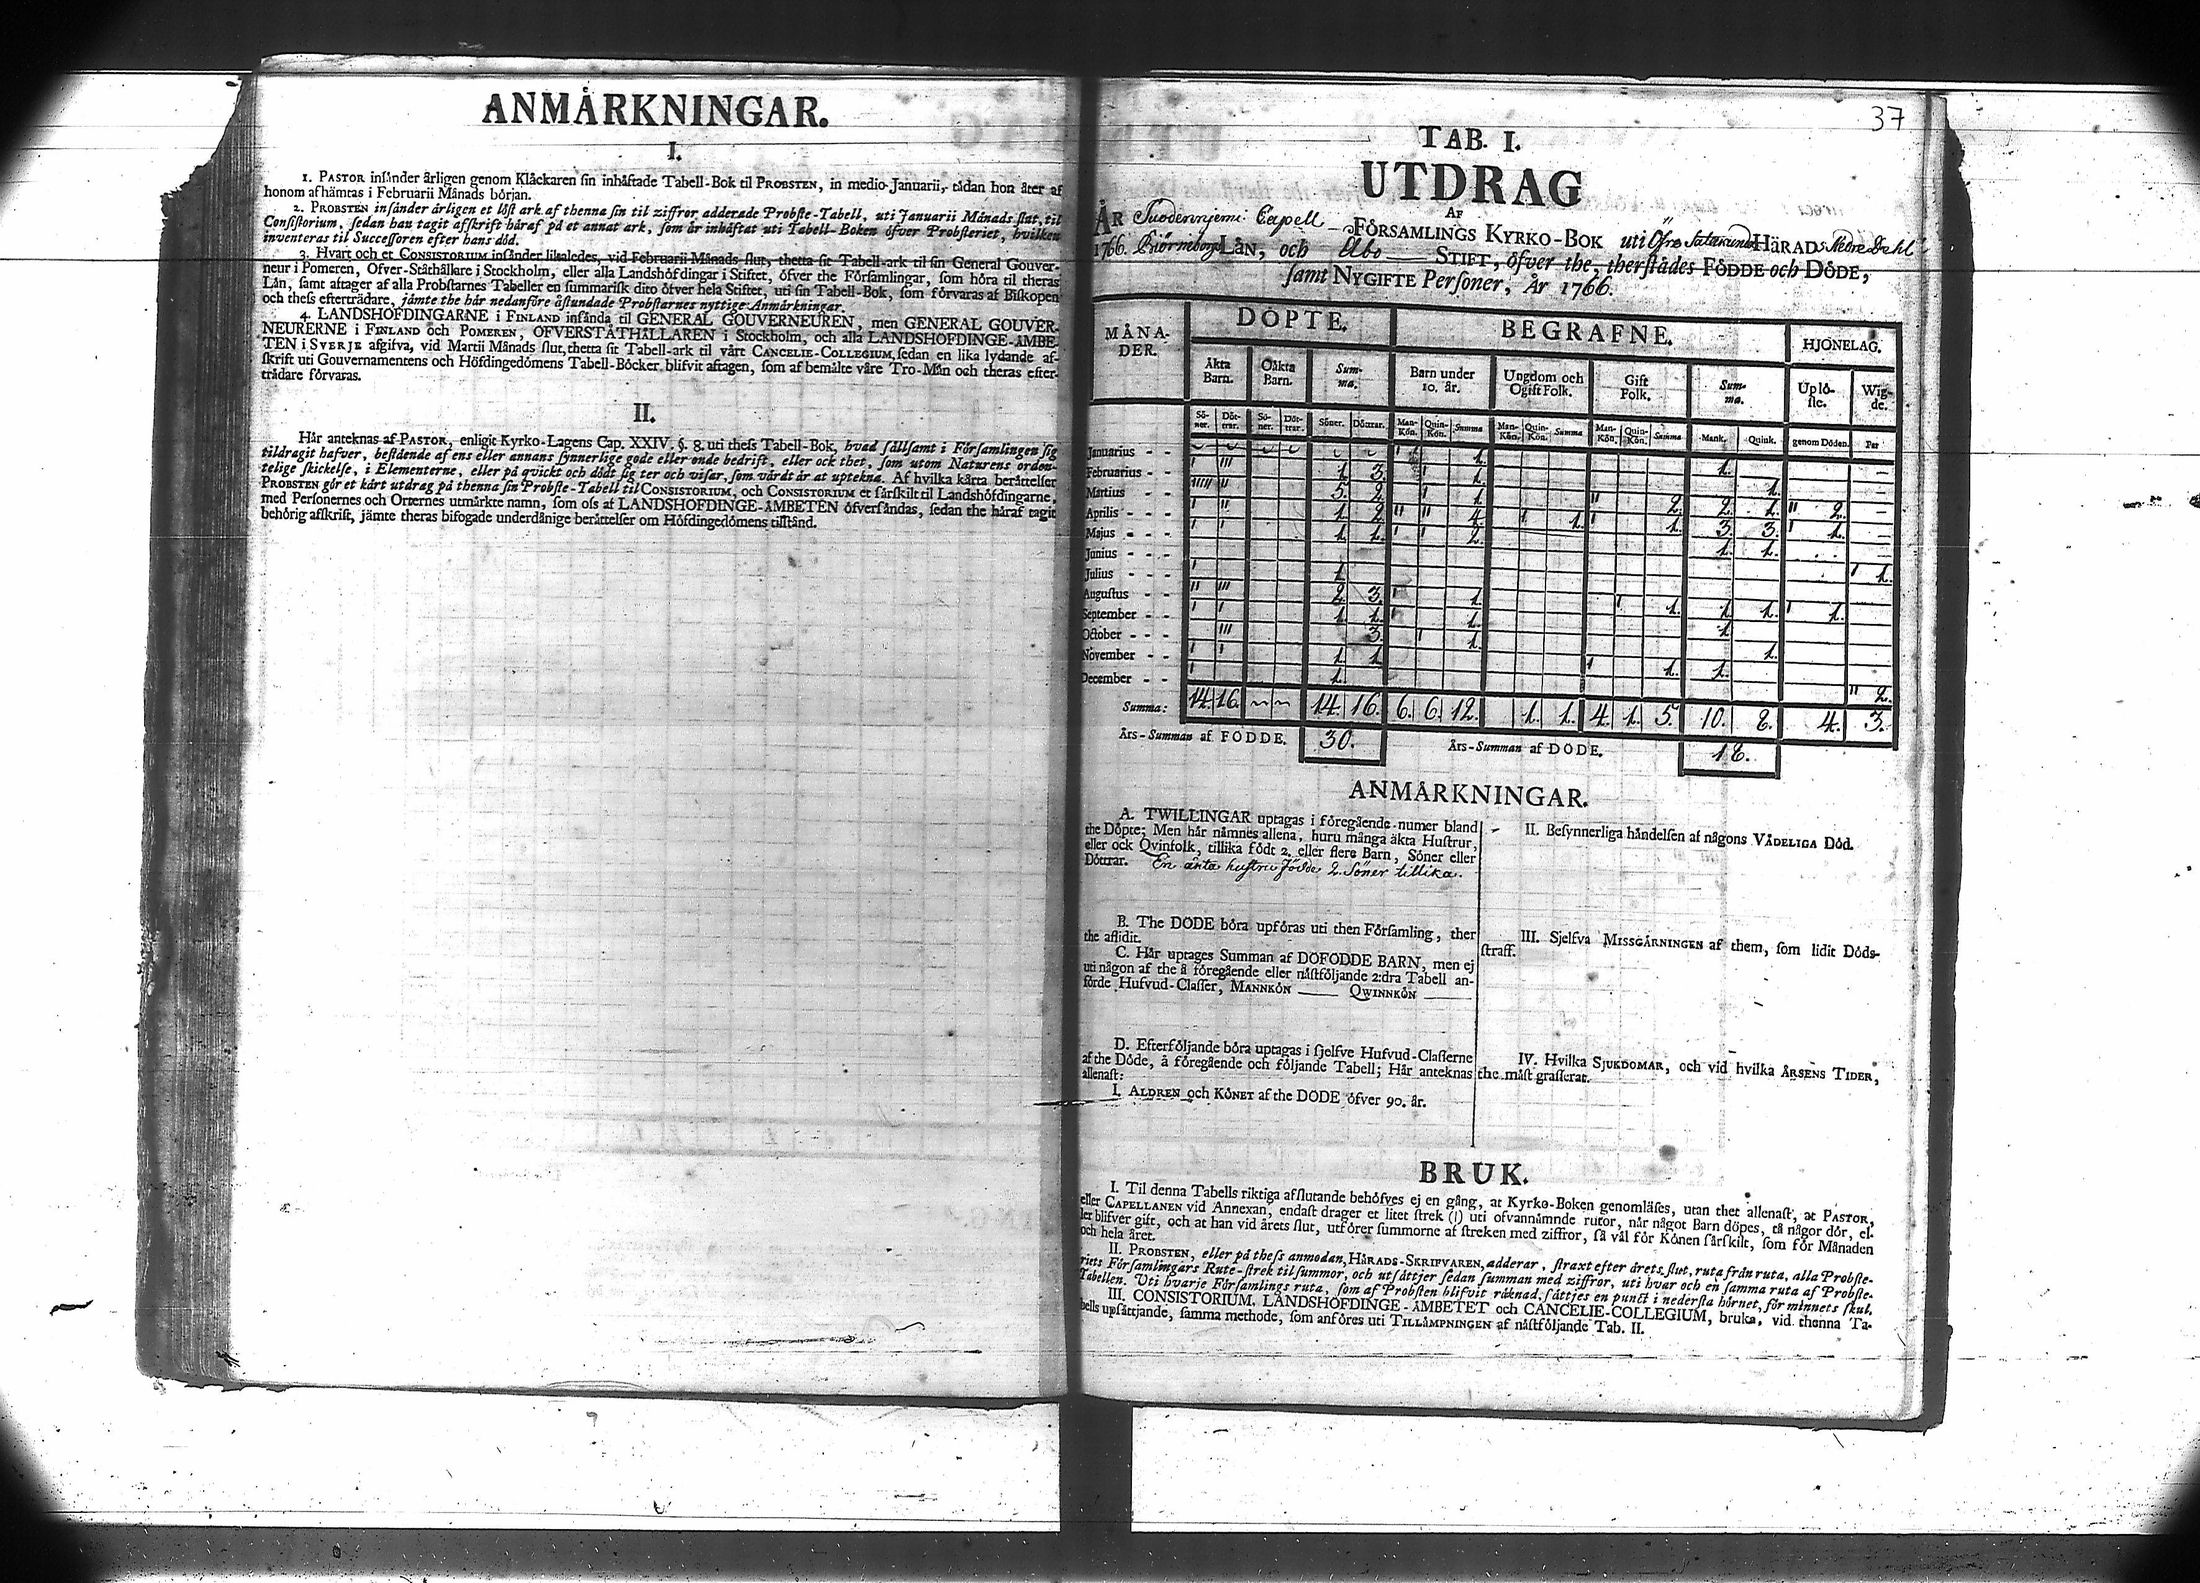 ANMÅRKNINGAR.
I.
1. PASTOR insånder årligen genom Klåckaren sin inhåftade Tabell-Bok til PROBSTEN, in medio Januarii, tådan hon åter af
honom afhåmtas i Februarii Månads början.
2. PROBSTEN insånder årligen et löst ark af thenna sin til ziffror adderade Probste-Tabell, uti Januarii Månads slut, til
Consistorium, sedan han tagit afskrift håraf på et annat ark, som år inhåftat uti Tabell-Boken öfver Probsteriet, hvilken
inventeras til Successoren efter hans död.
3. Hvart och et CONSISTORIUM insånder likaledes, vid Februarii Månads slut, thetta sit Tabell-ark til sin General Gouver-
neur i Pomeren, Ofver-Ståthållare i Stockholm, eller alla Landshöfdingar i Stiftet, öfver the Församlingar, som höra til theras
Lån, samt aftager af alla Probstarnes Tabeller en summarisk dito öfver hela Stiftet, uti sin Tabell-Bok, som förvaras af Biskopen
och thess eftertrådare, jåmte the hår nedanföre åstundade Probstarnes nyttige Anmårkningar.
4. LANDSHOFDINGARNE i FINLAND insånda til GENERAL GOUVERNEUREN, men GENERAL GOUVER-
NEURERNE i FINLAND och POMEREN, OFVERSTÅTHÅLLAREN i Stockholm, och alla LANDSHOFDINGE-ÅMBE-
TEN i SVERJE afgifva, vid Martii Månads slut, thetta sit Tabell-ark til vårt CANCELIE-COLLEGIUM, sedan en lika lydande af-
skrift uti Gouvernamentens och Höfdingedömens Tabell-Böcker blifvit aftagen, som af bemålte våre Tro-Mån och theras efter-
trådare förvaras.
II.
Hår anteknas af PASTOR, enligit Kyrko-Lagens Cap. XXIV. §. 8. uti thess Tabell-Bok, hvad sållsamt i Församlingen sig
tildragit hafver, bestående af ens eller annans synnerlige gode eller onde bedrift, eller ock thet, som utom Naturens orden-
telige skickelse, i Elementerne, eller på qvickt och dödt sig ter och visar, som vårdt år at uptekna. Af hvilka kårta beråttelser
PROBSTEN gör et kårt utdrag på thenna sin Probste-Tabell til CONSISTORIUM, och CONSISTORIUM et sårskilt til Landshöfdingarne,
med Personernes och Orternes utmårkte namn, som oss af LANDSHOFDINGE-ÅMBETEN öfversåndas, sedan the håraf tagit
behörig afskrift, jåmte theras bifogade underdånige beråttelser om Höfdingedömens tillstånd.
37
TAB. I.
UTDRAG
AF
ÅR Suodennjemi Capell FÖRSAMLINGS KYRKO-BOK uti Öfre Satacunda HÄRADS Nedre Dehl
1766. Biörneborgs LÅN, och Åbo STIFT, öfver the, therstådes FÖDDE och DÖDE,
samt NYGIFTE Personer, År 1766.
MÅNA-DER. DÖPTE. BEGRAFNE. HJONELAG.
Äkta Barn. Oåkta Barn. Summa. Barn under 10. år. Ungdom och Ogift Folk. Gift Folk. Summa. Uplöste. Wigde.
Söner. Döttrar. Söner. Döttrar. Söner. Döttrar. Man-Kön. Quin-Kön. Summa Man-Kön. Quin-Kön. Summa Man-Kön. Quin-Kön. Summa Mank. Quink. genom Döden. Par
Januarius - - ı 1. 1. -
Februarius - - ı ııı 1. 3. ı 1. 1. -
Martius - - ııııı ıı 5. 2. ı 1. ıı 2. 2. 1. ıı 2. -
Aprilis - - - ı ıı 1. 2. ıı ıı 4. ı 1. ı 1. 3. 3. ı 1. -
Majus - - - ı ı 1. 1. ı ı 2. 1. 1. -
Junius - - - ı 1.
Julius - - - ı 1.
Augustus - - ıı ııı 2. 3. ı 1. ı 1. 1. 1. ı 1.
September - - ı ı 1. 1. ı 1. 1.
October - - - ııı 3. ı 1. 1.
November - - ı ı 1. 1. ı 1. 1.
December - - ı 1. ıı 2.
Summa: 14. 16. 14. 16. 6. 6. 12. 1. 1. 4. 1. 5. 10. 8. 4. 3.
Års-Summan af FÖDDE. 30. Års-Summan af DÖDE. 18.
ANMÅRKNINGAR.
A. TWILLINGAR uptagas i föregående numer bland
the Döpte; Men hår nåmnes allena, huru många åkta Hustrur,
eller ock Qvinfolk, tillika födt 2. eller flere Barn, Söner eller
Döttrar. En äkta hustru Födde 2. Söner tillika.
B. The DÖDE böra upföras uti then Församling, ther
the aflidit.
C. Hår uptages Summan af DÖFÖDDE BARN, men ej
uti någon af the å föregående eller nåstföljande 2:dra Tabell an-
förde Hufvud-Classer, MANNKÖN —— QWINNKÖN ——
D. Efterföljande böra uptagas i sjelfve Hufvud-Classerne
af the Döde, å föregående och följande Tabell; Hår anteknas
allenast:
I. ÅLDREN och KÖNET af the DÖDE öfver 90. år.
II. Besynnerliga håndelsen af någons VÅDELIGA Död.
III. Sjelfva MISSGÅRNINGEN af them, som lidit Döds-
straff.
IV. Hvilka SJUKDOMAR, och vid hvilka ÅRSENS TIDER,
the måst grasserat.
BRUK.
I. Til denna Tabells riktiga afslutande behöfves ej en gång, at Kyrko-Boken genomlåses, utan thet allenast, at PASTOR,
eller CAPELLANEN vid Annexan, endast drager et litet strek (|) uti ofvannåmnde rutor, når något Barn döpes, tå någor dör, el-
ler blifver gift, och at han vid årets slut, utförer summorne af streken med ziffror, så vål för Könen sårskilt, som för Månaden
och hela året.
II. PROBSTEN, eller på thess anmodan, HÅRADS-SKRIFVAREN, adderar, straxt efter årets slut, ruta från ruta, alla Probste-
riets Församlingars Rute-strek til summor, och utsåttjer sedan summan med ziffror, uti hvar och en samma ruta af Probste-
Tabellen. Uti hvarje Församlings ruta, som af Probsten blifvit råknad, såttjes en punct i nedersta hörnet, för minnets skul.
III. CONSISTORIUM, LANDSHOFDINGE-ÅMBETET och CANCELIE-COLLEGIUM, bruka, vid thenna Ta-
bells upsåttjande, samma methode, som anföres uti TILLÅMPNINGEN af nåstföljande Tab. II.